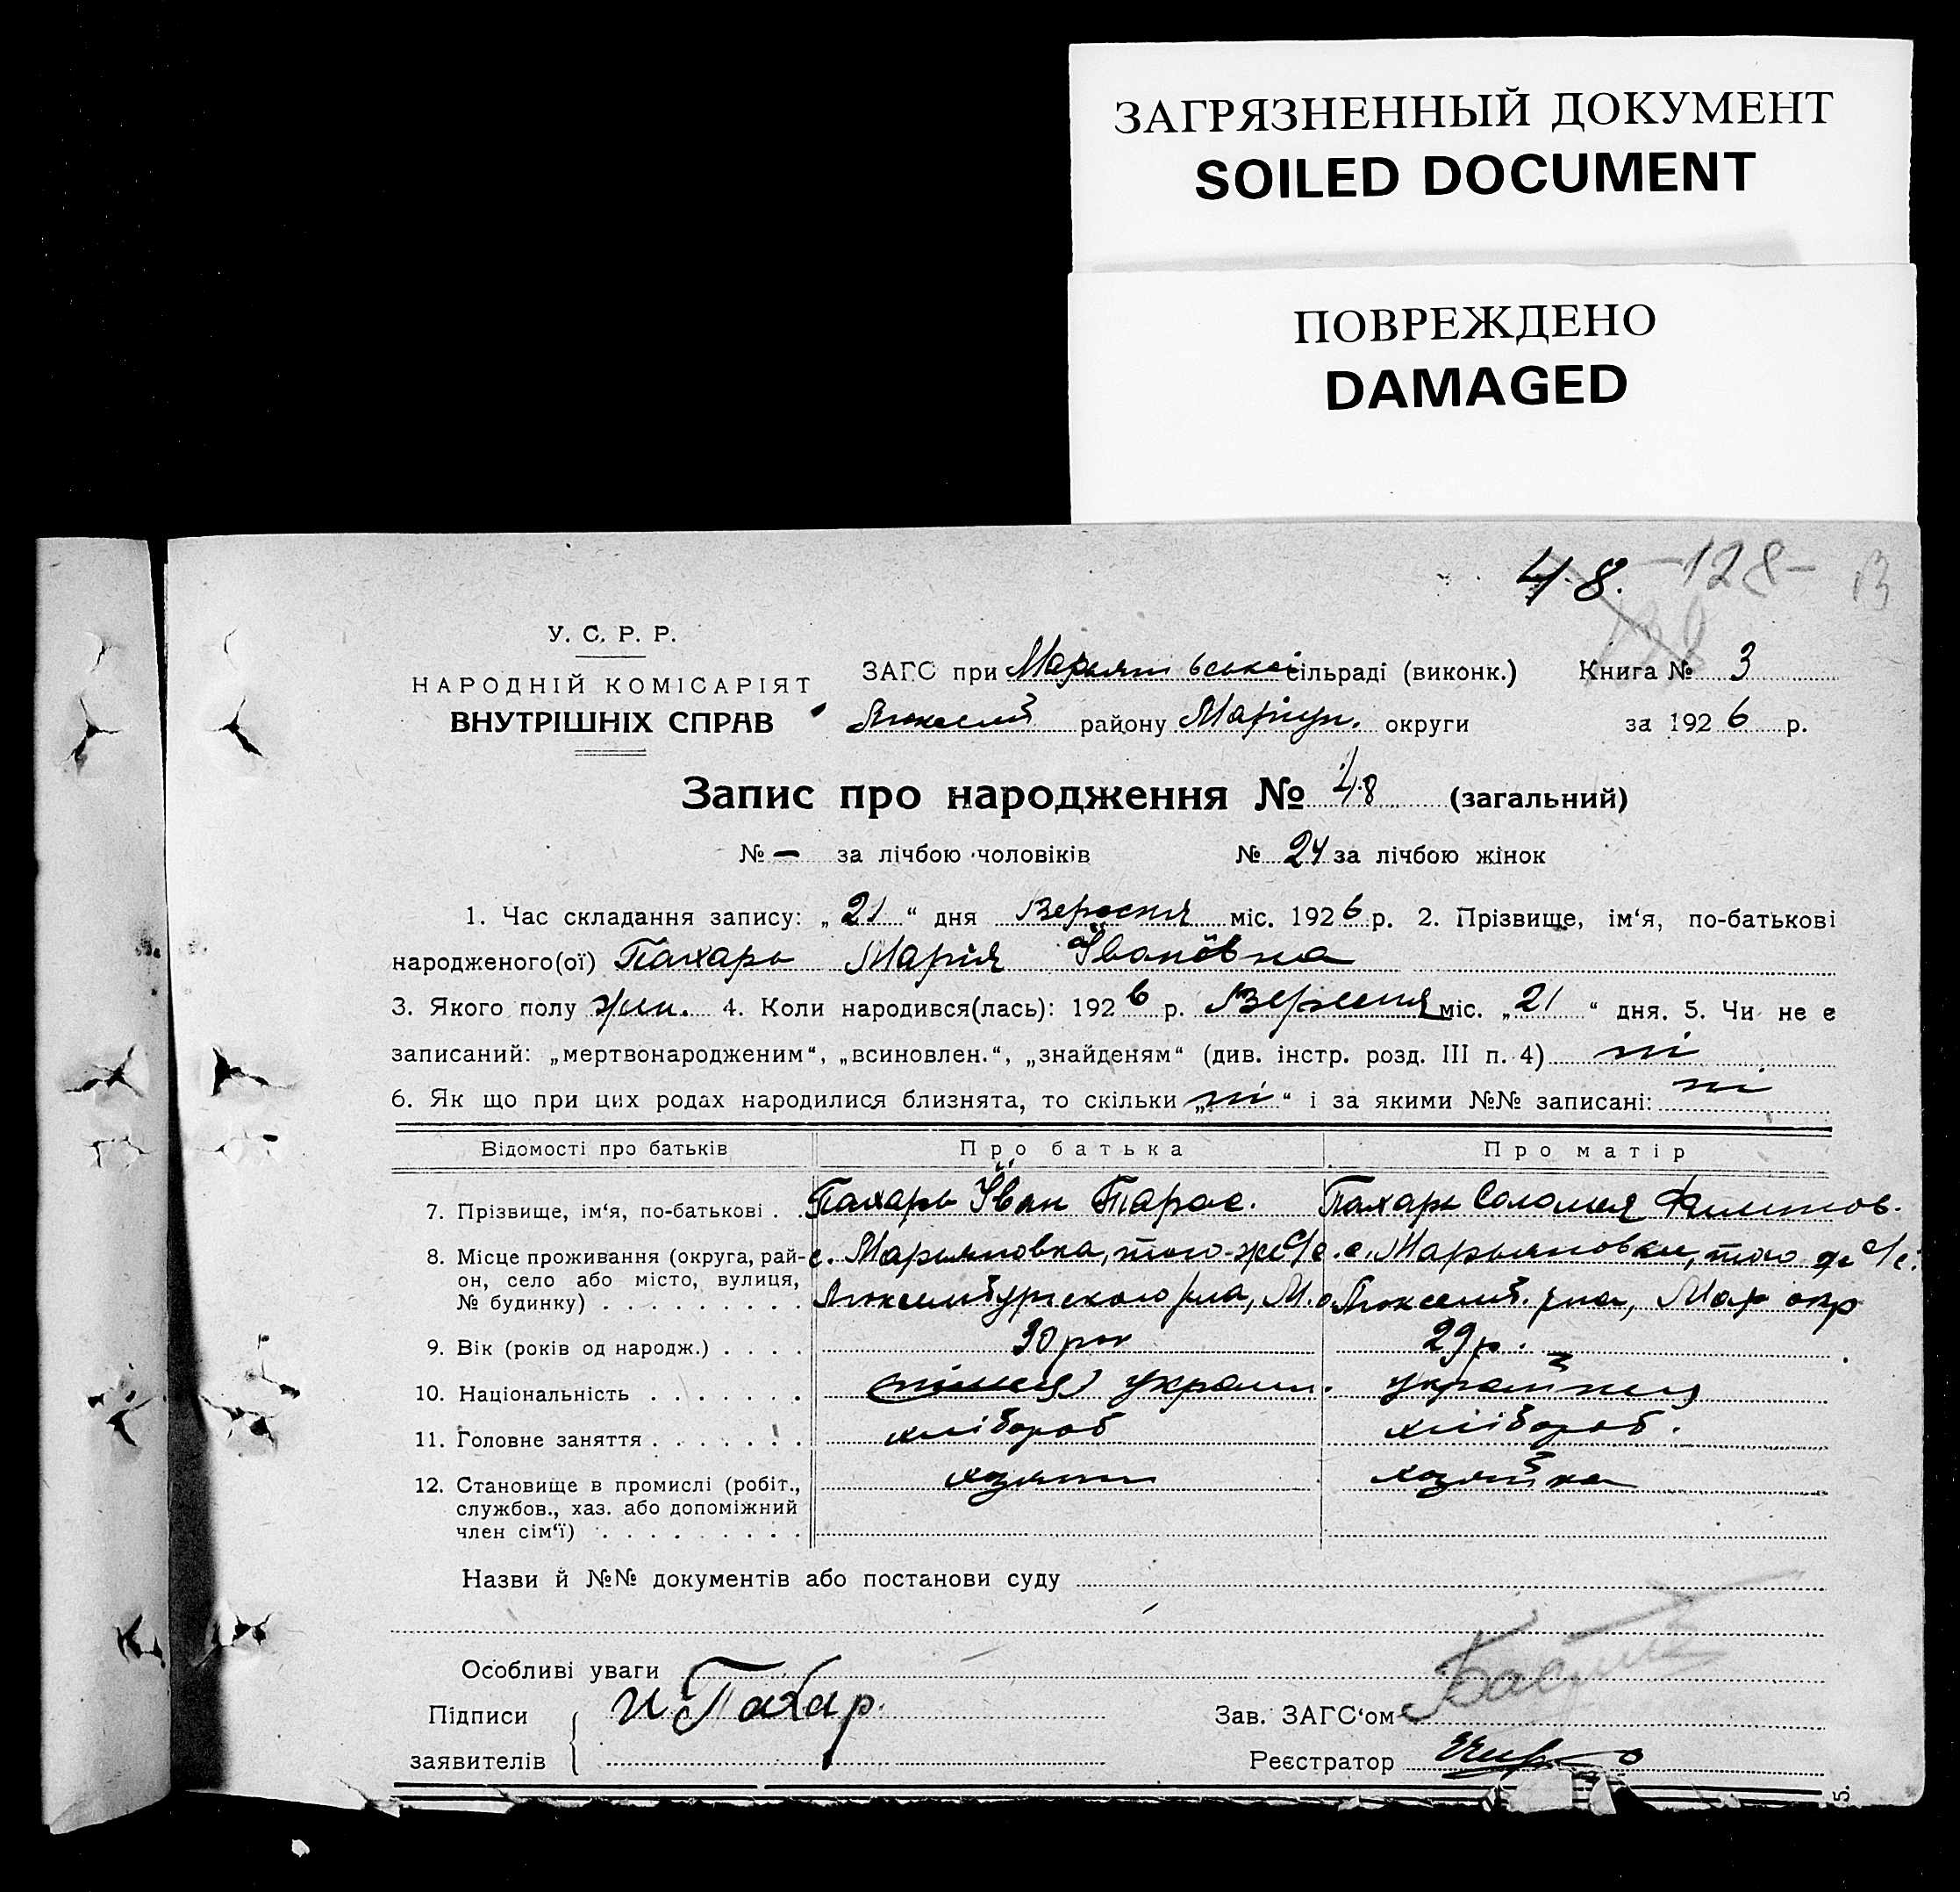 ЗАГРЯЗНЕННЫЙ ДОКУМЕНТ
SOILED DOCUMENT
ПОВРЕЖДЕНО
DAMAGED
48. -128-
У. С. Р. Р.
НАРОДНІЙ КОМІСАРІЯТ
ВНУТРІШНІХ СПРАВ
ЗАГС при сільраді (виконк.) Книга № 3
району Маріуп. округи за 1926 р.
Запис про народження № 48 (загальний)
№ — за лічбою чоловіків № 24 за лічбою жінок
1. Час складання запису: „21“ дня Вересня міс. 1926 р. 2. Прізвище, ім‘я, по-батькові
народженого(ої) Пахарь Марія Івановна
3. Якого полу жін. 4. Коли народився(лась): 1926 р. Вересня міс. „21“ дня. 5. Чи не є
записаний: „мертвонародженим“, „всиновлен.“, „знайденям“ (див. інстр. розд. III п. 4) ні
6. Як що при цих родах народилися близнята, то скільки „ні“ і за якими №№ записані: ні
Відомості про батьків Про батька Про матір
7. Прізвище, ім‘я, по-батькові . . Пахарь Іван Тарас. Пахарь Соломия Филипов.
8. Місце проживання (округа, рай- с. Марьяновка, того-же с/с. с. Марьяновки, того же с/с.
он, село або місто, вулиця,
№ будинку) . . . . . . . . . Люксембургського р-на, М.о Люксемб. р-на, Мар окр
9. Вік (років од народж.) . . . . 30 рок 29 р.
10. Національність . . . . . . . украин. украйнка
11. Головне заняття . . . . . . . хлібороб хлібороб.
12. Становище в промислі (робіт., хозяин хозяйка
службов., хаз. або допоміжний
член сім‘ї) . . . . . . . . .
Назви й №№ документів або постанови суду
Особливі уваги
Підписи И Пахар. Зав. ЗАГС‘ом
заявителів Реєстратор
5.